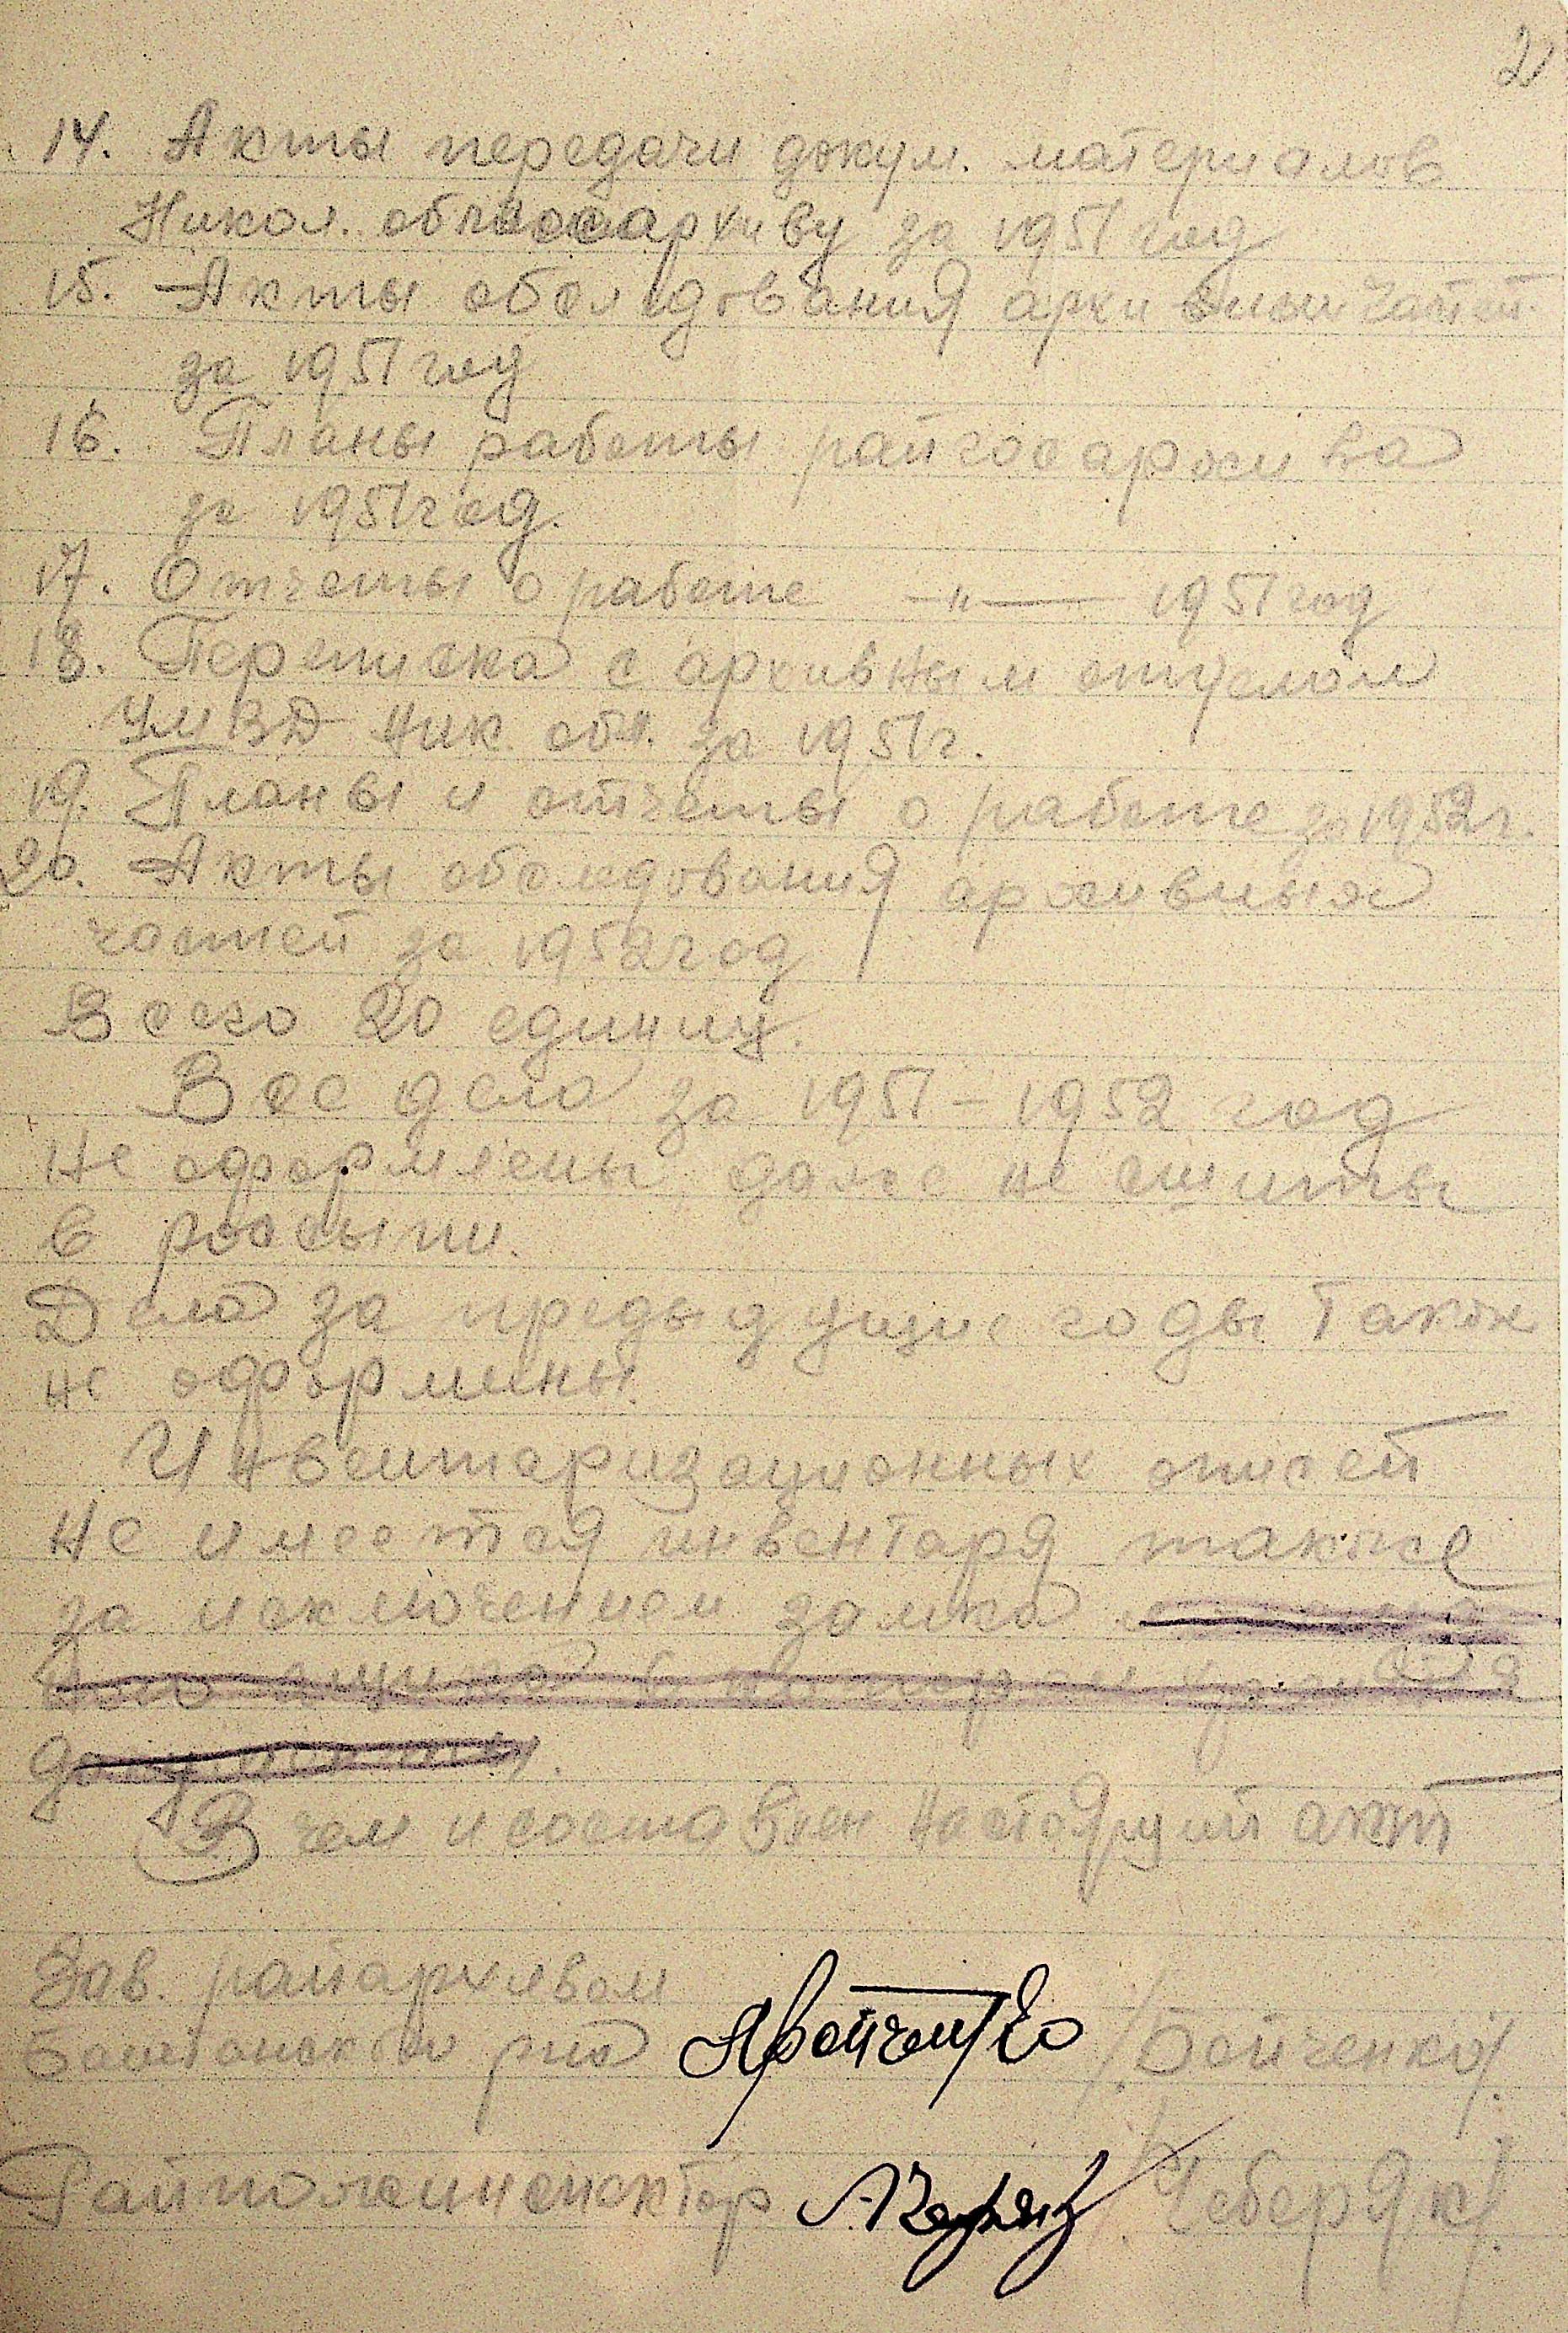 2
14. Акты передачи докум. материалов
Никол. облгосархиву за 1951 год
15. Акты обследования архивных частей
за 1951 год
16. Планы работы райгосархива
за 1951 год.
17. Отчеты о работе —"— 1951 год
18. Переписка с архивным отделом
УМВД Ник. обл. за 1951 г.
19. Планы и отчеты о работе за 1952 г.
20. Акты обследования архивных
частей за 1952 год
Всего 20 единиц.
Все дела за 1951 – 1952 год
не оформлены, даже не сшиты
в россыпи.
Дела за предыдущие годы также
не оформлены.
Инвентаризационных описей
не имеется инвентаря также
за исключением замка
ящика в котором хранятся
документы.
В чем и составлен настоящий акт
Зав. райархивом
Баштанского р-на /Бойченко/.
Райполитинспектор /Чеберяк/.